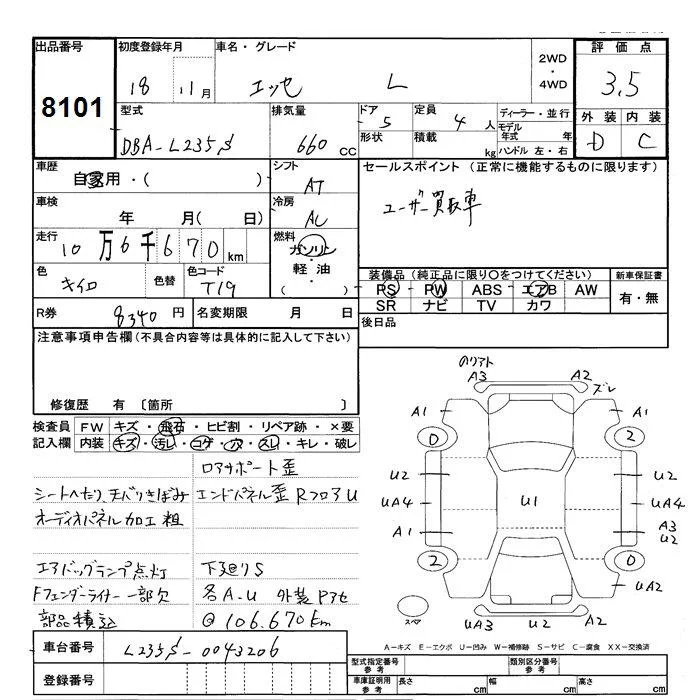 出品番号
8101
初度登録年月
18 . 11月
車名・グレード
エッセ L
2WD
・
4WD
評価点
3.5
外装 内装
D C
型式
DBA-L235S
排気量
660 CC
ドア
5
形状
定員
4 人
積載
kg
ディーラー・並行
モデル年式 年
ハンドル 左・右
車歴
自家用・( )
シフト
AT
セールスポイント(正常に機能するものに限ります)
ユーザー買取車
車検
年 月( 日)
冷房
AC
走行
10万6千670km
燃料
ガソリン
・
軽油
( )
色
キイロ
色替
色コード
T19
装備品(純正品に限り○をつけてください)
PS PW ABS エアB AW
SR ナビ TV カワ
新車保証書
有・無
R券 8340円
名変期限 月 日
後日品
注意事項申告欄(不具合内容等は具体的に記入して下さい)
修復歴 有 〔箇所 〕
検査員記入欄
FW キズ・飛石・ヒビ割・リペア跡・×要
内装 キズ・汚レ・コゲ・穴・スレ・キレ・破レ
コアサポート歪
シートへたり、天バリきばみ エンドパネル歪 RフロアU
オーディオパネル加工粗
エアバッグランプ点灯 下廻りS
Fフェンダーライナー一部欠 各A-U 外装Pアセ
部品積込 @106.670km
車台番号 L235S-0043206
登録番号
のリアト
A3 A2
ズレ
A1 A1
0 2
U2 U2
UA4 U1 UA4
A1 A3
U2
2 0
UA2
スペア
UA3 U2 A2
A-キズ E-エクボ U-凹み W-補修跡 S-サビ C-腐食 XX-交換済
型式指定番号
参考
類別区分番号
参考
車庫証明用
参考
長さ cm
幅 cm
高さ cm